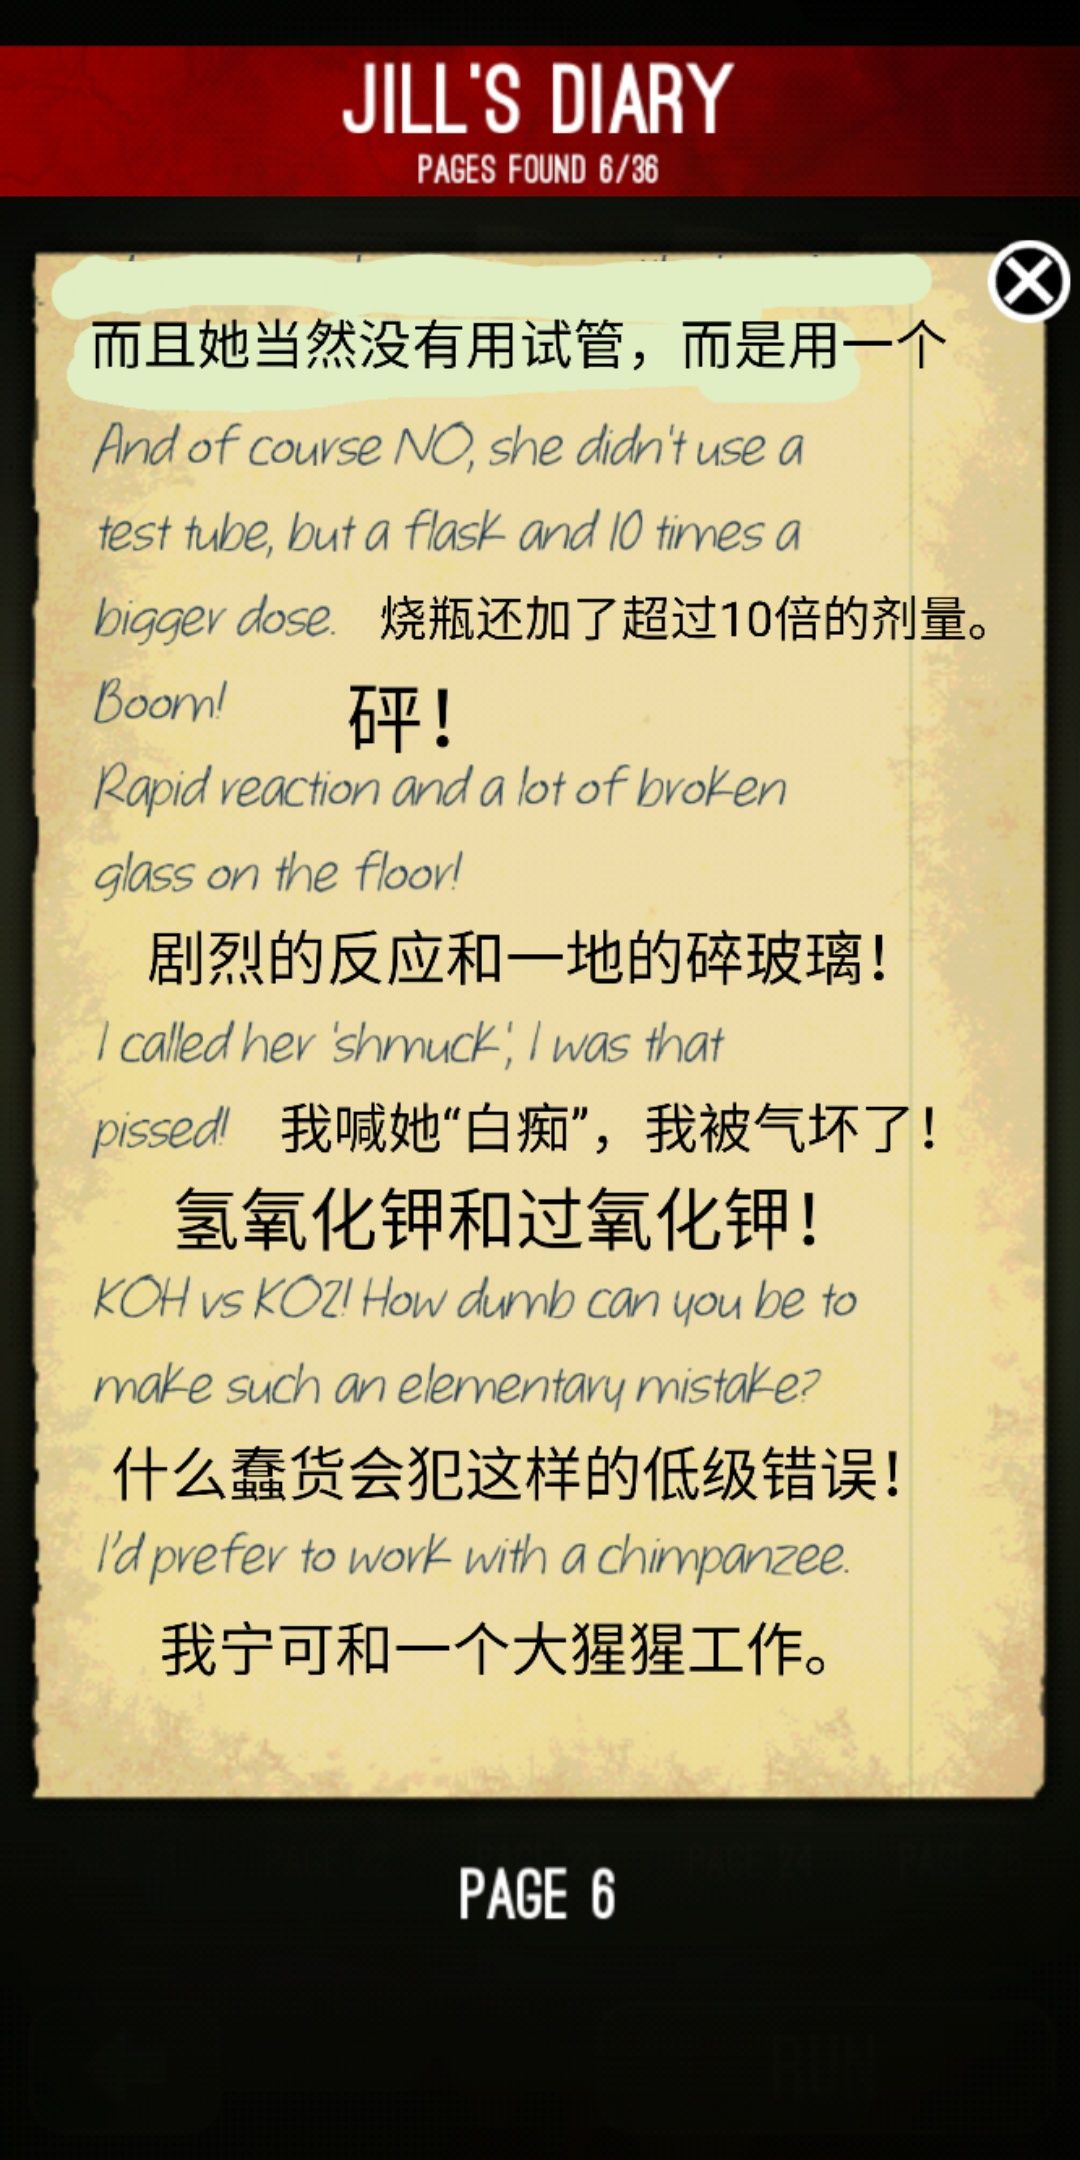 JILL'S DIARY
PAGES FOUND 6/36
而且她当然没有用试管，而是用一个
And of course NO, she didn't use a
test tube, but a flask and 10 times a
bigger dose. 烧瓶还加了超过10倍的剂量。
Boom! 砰！
Rapid reaction and a lot of broken
glass on the floor!
剧烈的反应和一地的碎玻璃！
I called her 'shmuck', I was that
pissed! 我喊她“白痴”，我被气坏了！
氢氧化钾和过氧化钾！
KOH vs KO2! How dumb can you be to
make such an elementary mistake?
什么蠢货会犯这样的低级错误！
I'd prefer to work with a chimpanzee.
我宁可和一个大猩猩工作。
PAGE 6